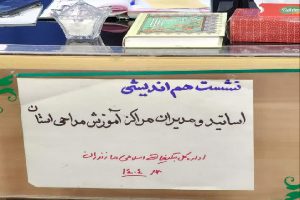 نشست هم اندیشی
اساتید و مدیران مراکز آموزش مداحی استان
اداره کل تبلیغات اسلامی مازندران